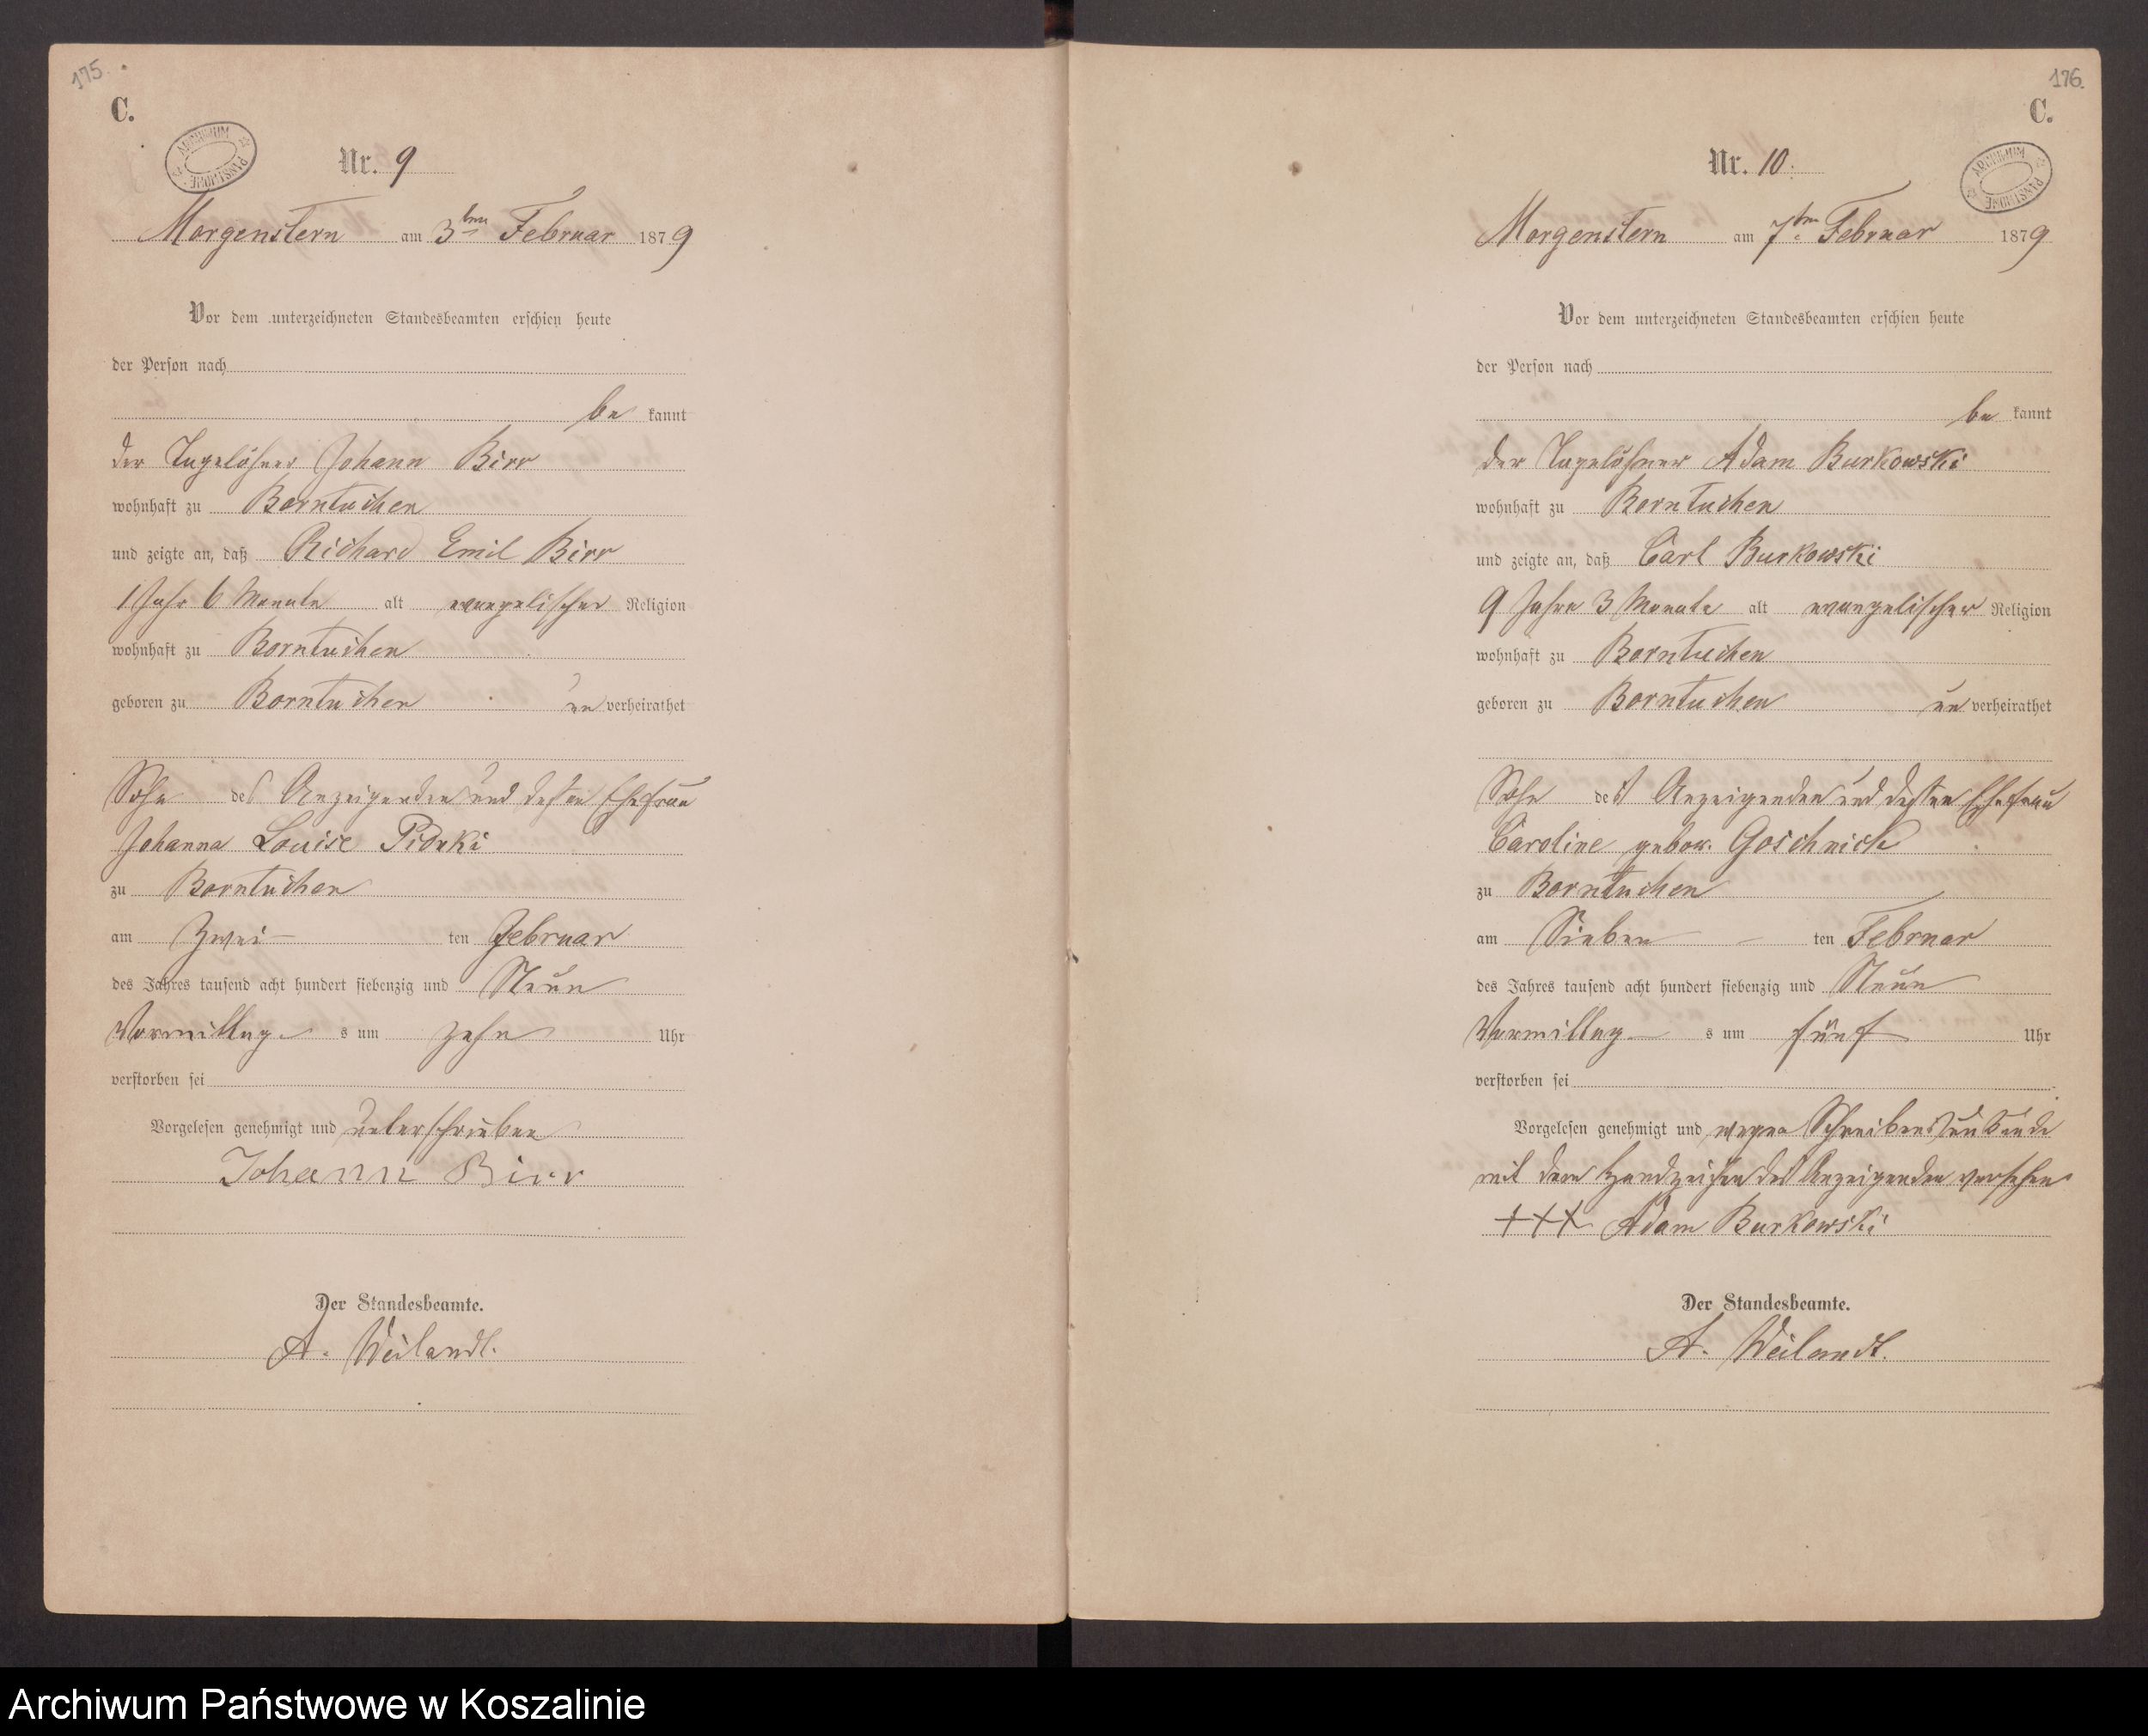 175.
C.
ARCHIWUM PAŃSTWOWE
Nr. 9
Morgenstern am 3ten Februar 1879
Vor dem unterzeichneten Standesbeamten erschien heute
der Person nach
be kannt
der Tagelöhner Johann Birr
wohnhaft zu Borntuchen
und zeigte an, daß Richard Emil Birr
1 Jahr 6 Monate alt evangelischer Religion
wohnhaft zu Borntuchen
geboren zu Borntuchen un verheirathet
Sohn des Anzeigenden und dessen Ehefrau
Johanna Louise
zu Borntuchen
am Zwei ten Februar
des Jahres tausend acht hundert siebenzig und Neun
Vormittag s um zehn Uhr
verstorben sei
Vorgelesen genehmigt und unterschrieben
Johann Birr
Der Standesbeamte.
A. Weilandt.
176.
C.
ARCHIWUM PAŃSTWOWE
Nr. 10.
Morgenstern am 7ten Februar 1879
Vor dem unterzeichneten Standesbeamten erschien heute
der Person nach
be kannt
der Tagelöhner Adam Burkowski
wohnhaft zu Borntuchen
und zeigte an, daß Carl Burkowski
9 Jahre 3 Monate alt evangelischer Religion
wohnhaft zu Borntuchen
geboren zu Borntuchen un verheirathet
Sohn des Anzeigenden und dessen Ehefrau
Caroline gebor. Goschnick
zu Borntuchen
am Sieben ten Februar
des Jahres tausend acht hundert siebenzig und Neun
Vormittag s um fünf Uhr
verstorben sei
Vorgelesen genehmigt und wegen Schreibensunkunde
mit dem Handzeichen des Anzeigenden versehen
+++ Adam Burkowski
Der Standesbeamte.
A. Weilandt.
Archiwum Państwowe w Koszalinie